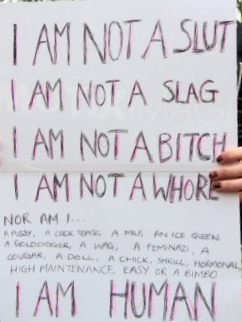 I AM NOT A SLUT
I AM NOT A SLAG
I AM NOT A BITCH
I AM NOT A WHORE
NOR AM I...
A PASSY, A COCK TEASE, A MILF, AN ICE QUEEN
A GOLDDIGGER, A WAG, A FEMINAZI, A
COUGAR, A DOLL, A CHICK, SHRILL, HORMONAL,
HIGH MAINTENANCE, EASY OR A BIMBO
I AM HUMAN